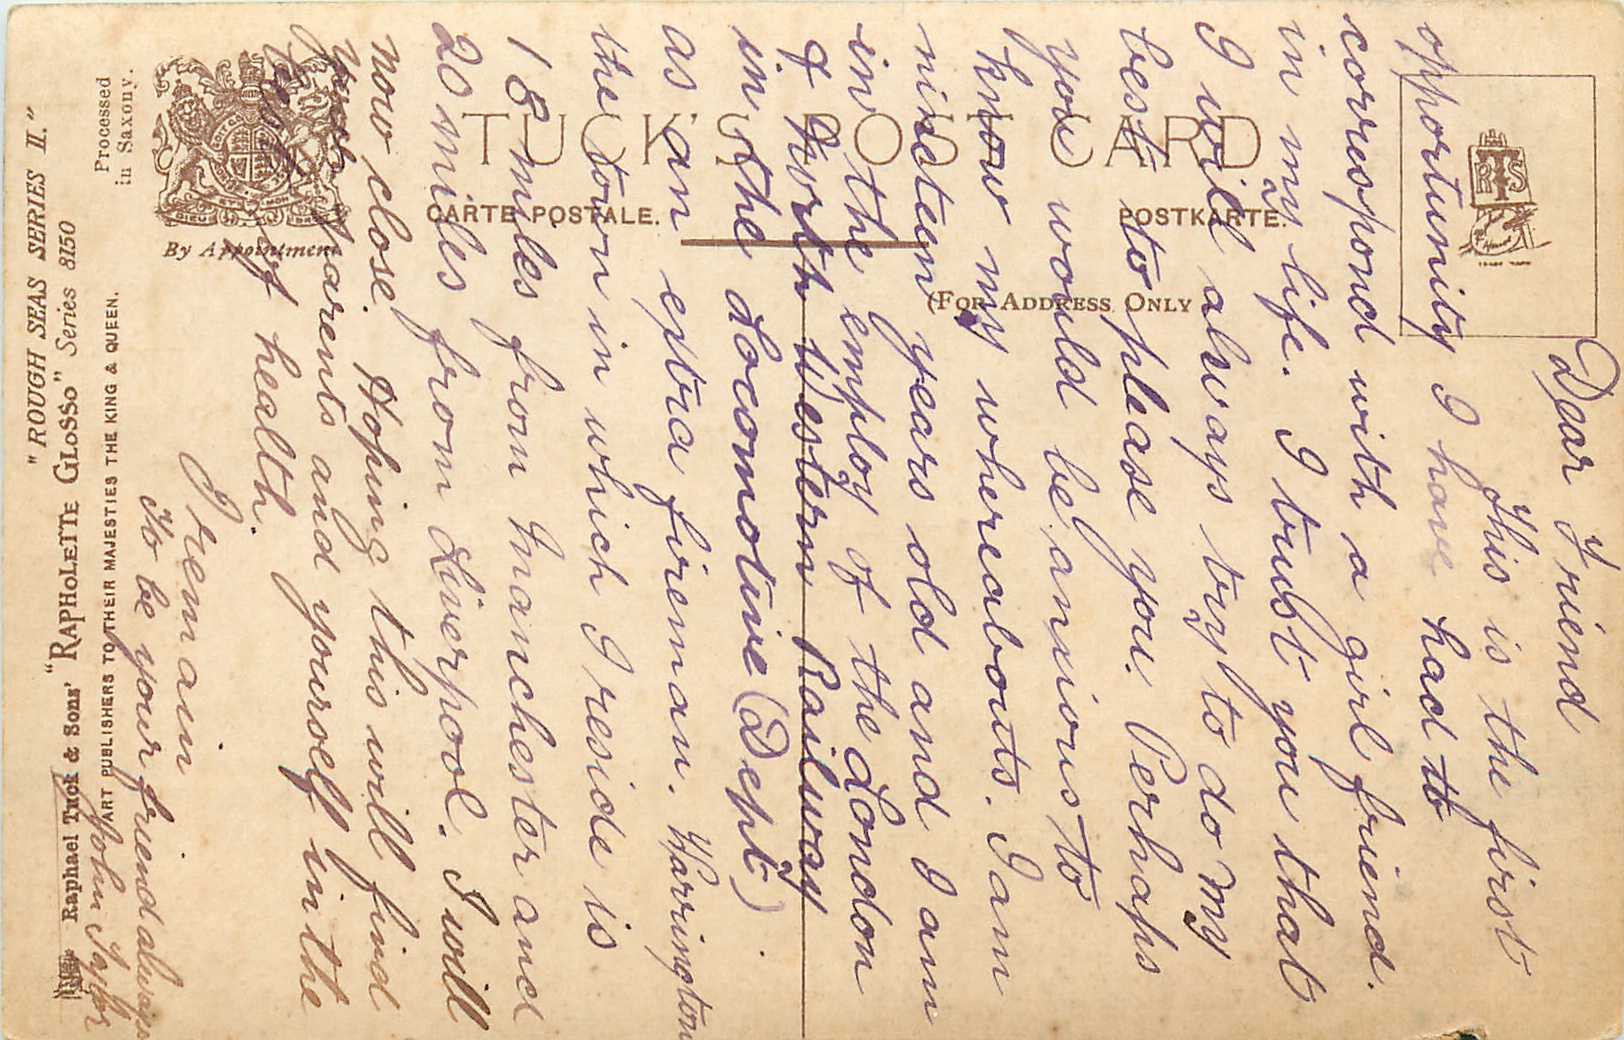 Dear Friend
This is the first
opportunity I have had to
correspond with a girl friend.
in my life. I trust you that
I will always try to do my
best to please you. Perhaps
you would be anxious to
know my whereabouts. I am
nineteen years old and I am
in the employ of the London
& North Western Railway
in the Locomotive (Dept)
as an extra fireman. Warrington
the town in which I reside is
18 miles from Manchester and
20 miles from Liverpool. I will
now close. Hoping this will find
your parents and yourself in the
best of health.
I remain
To be your friend always
John Taylor
TUCK'S POST CARD
CARTE POSTALE.
POSTKARTE.
(FOR ADDRESS ONLY
By Appointment
Processed
in Saxony.
"ROUGH SEAS SERIES II."
Raphael Tuck & Sons' "RAPHOLETTE GLOSSO" Series 8150
ART PUBLISHERS TO THEIR MAJESTIES THE KING & QUEEN.
RTS
TRADE MARK